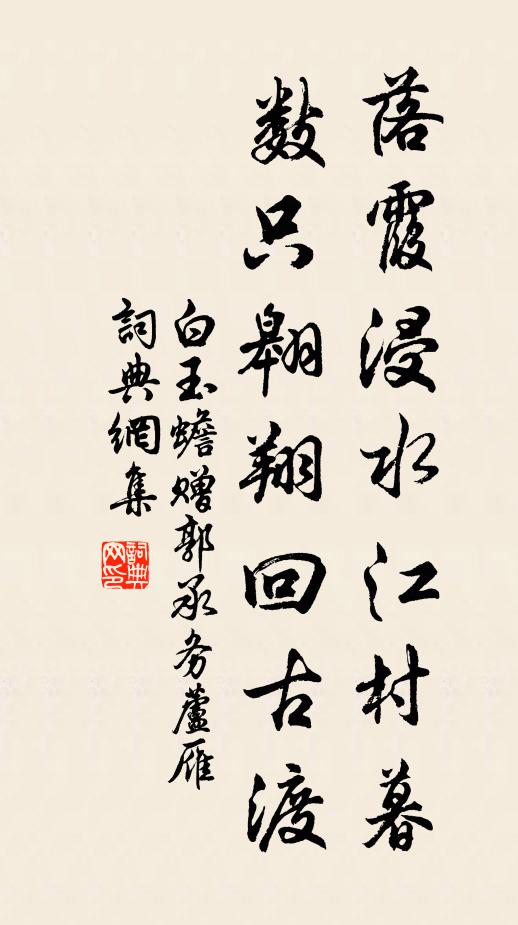 落霞浸水江村暮
数只翱翔回古渡
白玉蟾赠郭承务蘆雁
詞典網集
詞典网印